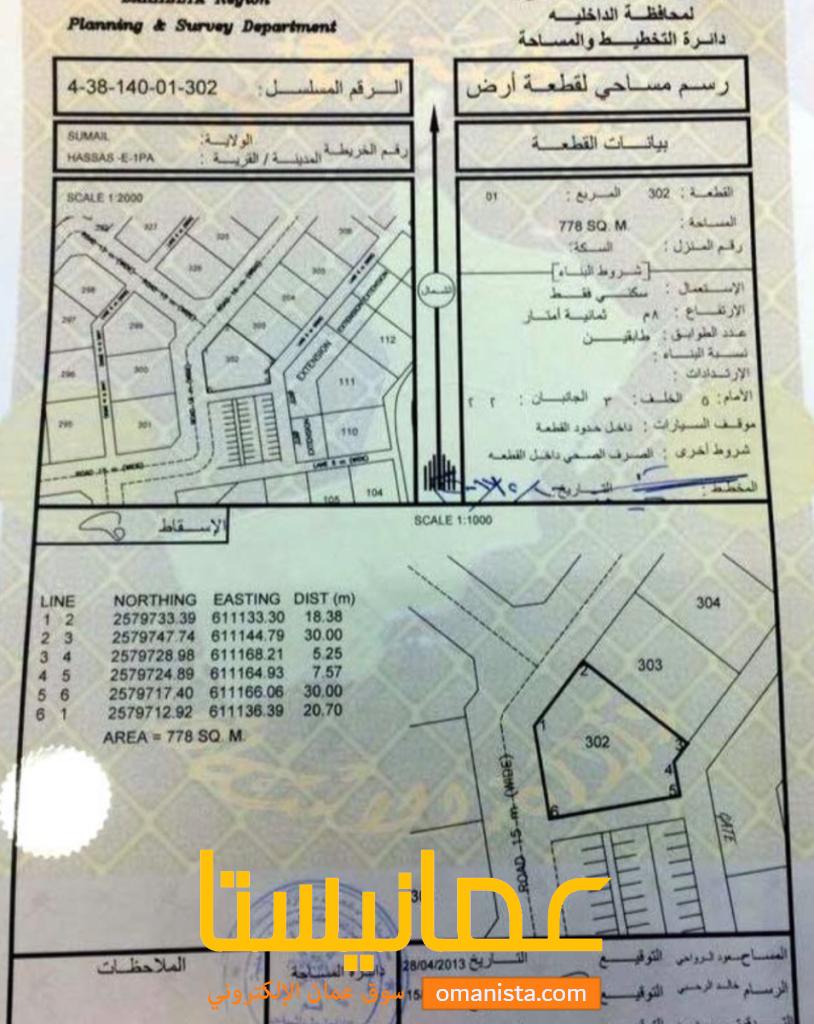 Planning & Survey Department
لمحافظة الداخلية
دائرة التخطيط والمساحة
رسم مساحي لقطعة أرض
الرقم المسلسل : 4-38-140-01-302
بيانات القطعة
الولاية: SUMAIL
رقم الخريطة المدينة / القرية : HASSAS -E-1PA
SCALE 1:2000
القطعة : 302 المربع : 01
المساحة : 778 SQ. M.
رقم المنزل : السكة:
شروط البناء
الإستعمال : سكني فقط
الإرتفاع : ٨م ثمانية أمتار
عدد الطوابق : طابقين
نسبة البناء :
الإرتدادات :
الأمام: ٥ الخلف: ٣ الجانبان : ٢ ٢
موقف السيارات : داخل حدود القطعة
شروط أخرى : الصرف الصحي داخل القطعه
المخطط : التاريخ:
الشمال
327
325
326
306
305
298
304
297
299
303
302
112
296
300
EXTENSION
111
295
301
110
ROAD 15 m (WIDE)
LANE 6 m (WIDE)
105
104
الإسقاط
SCALE 1:1000
LINE NORTHING EASTING DIST (m)
1 2 2579733.39 611133.30 18.38
2 3 2579747.74 611144.79 30.00
3 4 2579728.98 611168.21 5.25
4 5 2579724.89 611164.93 7.57
5 6 2579717.40 611166.06 30.00
6 1 2579712.92 611136.39 20.70
AREA = 778 SQ. M.
304
303
2
1
302
3
4
5
6
ROAD 15 m (WIDE)
GATE
عمانيستا
سوق عمان الإلكتروني
omanista.com
الملاحظات
دائرة المساحة
التاريخ 28/04/2013
المساح سعود الرواحي التوقيع
الرسام خالد الرحبي التوقيع